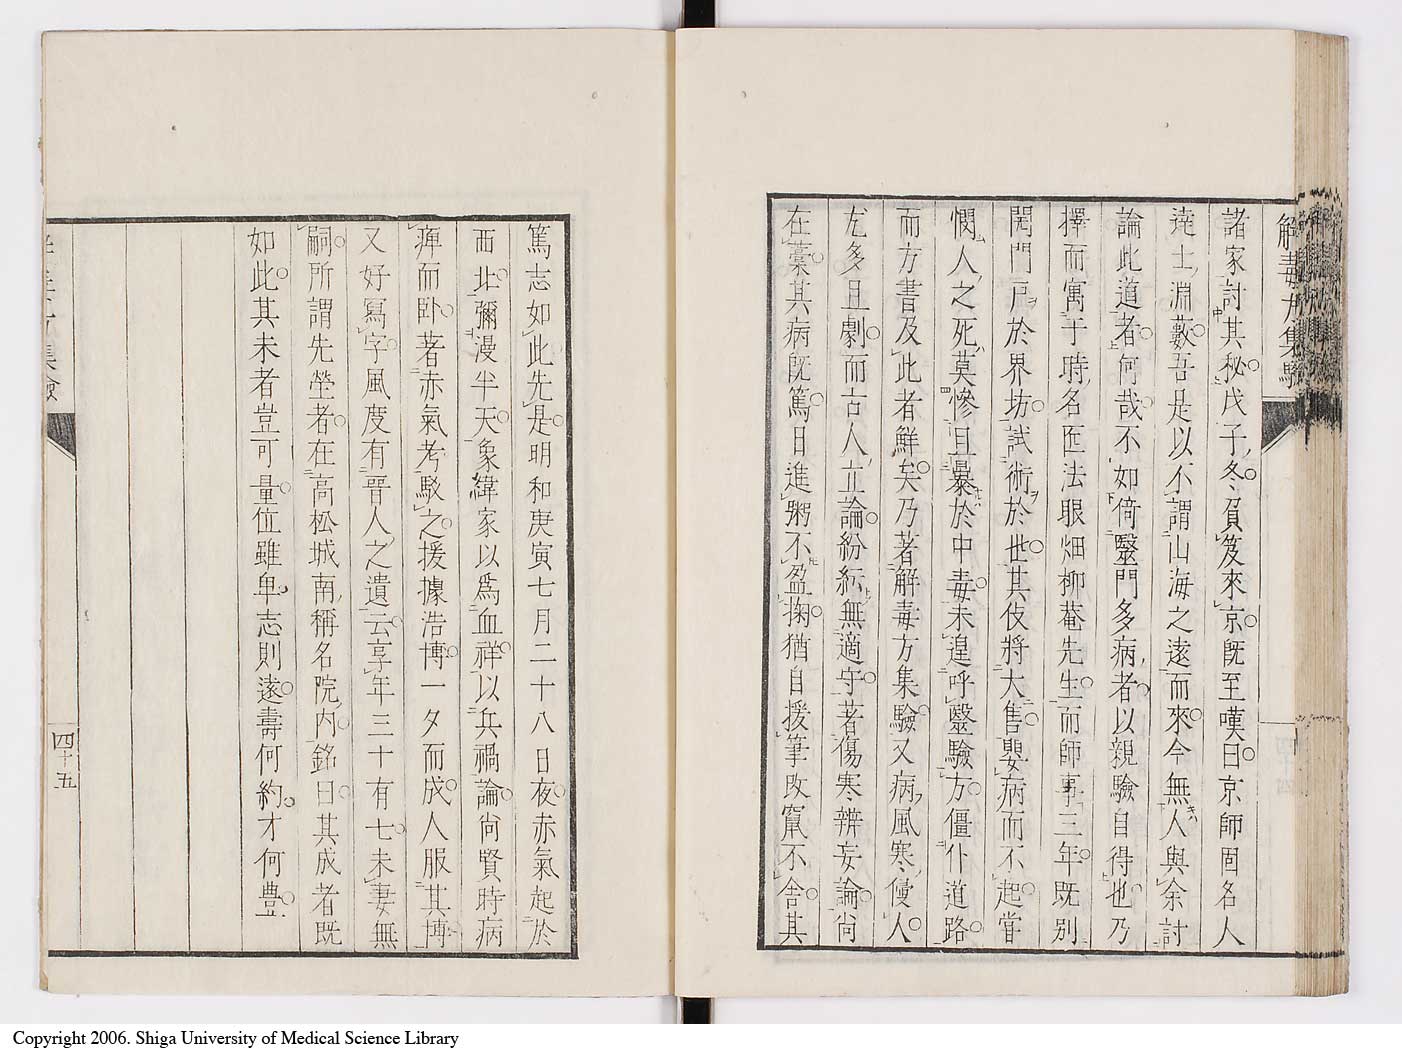 解毒方集驗
諸家討其秘戊子冬負笈來京既至嘆曰京師固名人
達士淵藪吾是以不謂山海之遠而來今無人與余討
論此道者何哉不如倚毉門多病者以親驗自得也乃
擇而寓于時名医法眼畑柳菴先生而師事三年既別
開門戸於界坊試術於世其伎將大售嬰病而不起當
憫人之死莫慘且暴於中毒未遑呼毉驗方僵仆道路
而方書及此者鮮矣乃著解毒方集驗又病風寒傻人
尤多且劇而古人立論紛紜無適守著傷寒辨妄論尚
在藁其病既篤日進粥不盈掬猶自援筆改竄不舍其
篤志如此先是明和庚寅七月二十八日夜赤氣起於
西北彌漫半天象緯家以爲血祥以兵禍論尚賢時病
痺而卧著赤氣考駁之援據浩博一夕而成人服其博
又好寫字風度有晋人之遺云享年三十有七未妻無
嗣所謂先塋者在高松城南稱名院内銘曰其成者既
如此其未者豈可量位雖卑志則遂壽何約才何豊
四十五
Copyright 2006. Shiga University of Medical Science Library